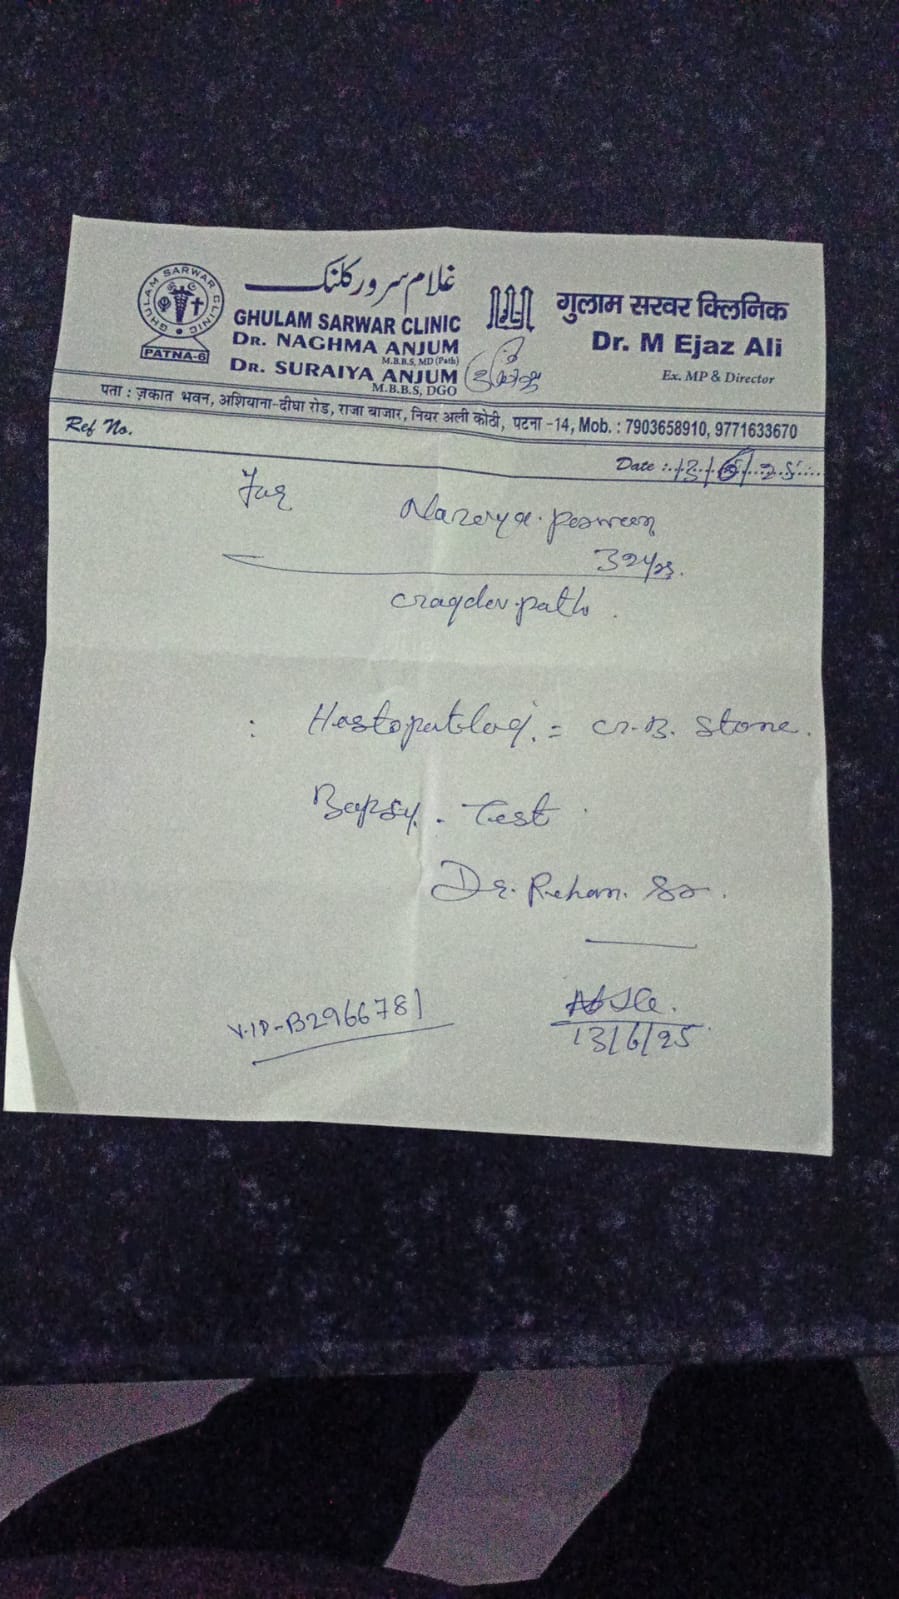 GHULAM SARWAR CLINIC
PATNA-6
غلام سرور کلنک
GHULAM SARWAR CLINIC
DR. NAGHMA ANJUM
M.B.B.S, MD (Path)
DR. SURAIYA ANJUM
M.B.B.S, DGO
गुलाम सरवर क्लिनिक
Dr. M Ejaz Ali
Ex. MP & Director
पता : ज़कात भवन, अशियाना-दीघा रोड, राजा बाजार, नियर अली कोठी, पटना -14, Mob. : 7903658910, 9771633670
Ref No.
Date : 13/6/25
32yrs.
path.
= Stone.
Test
Dr. Rehan. Sr.
V.ID-B2966781
13/6/25